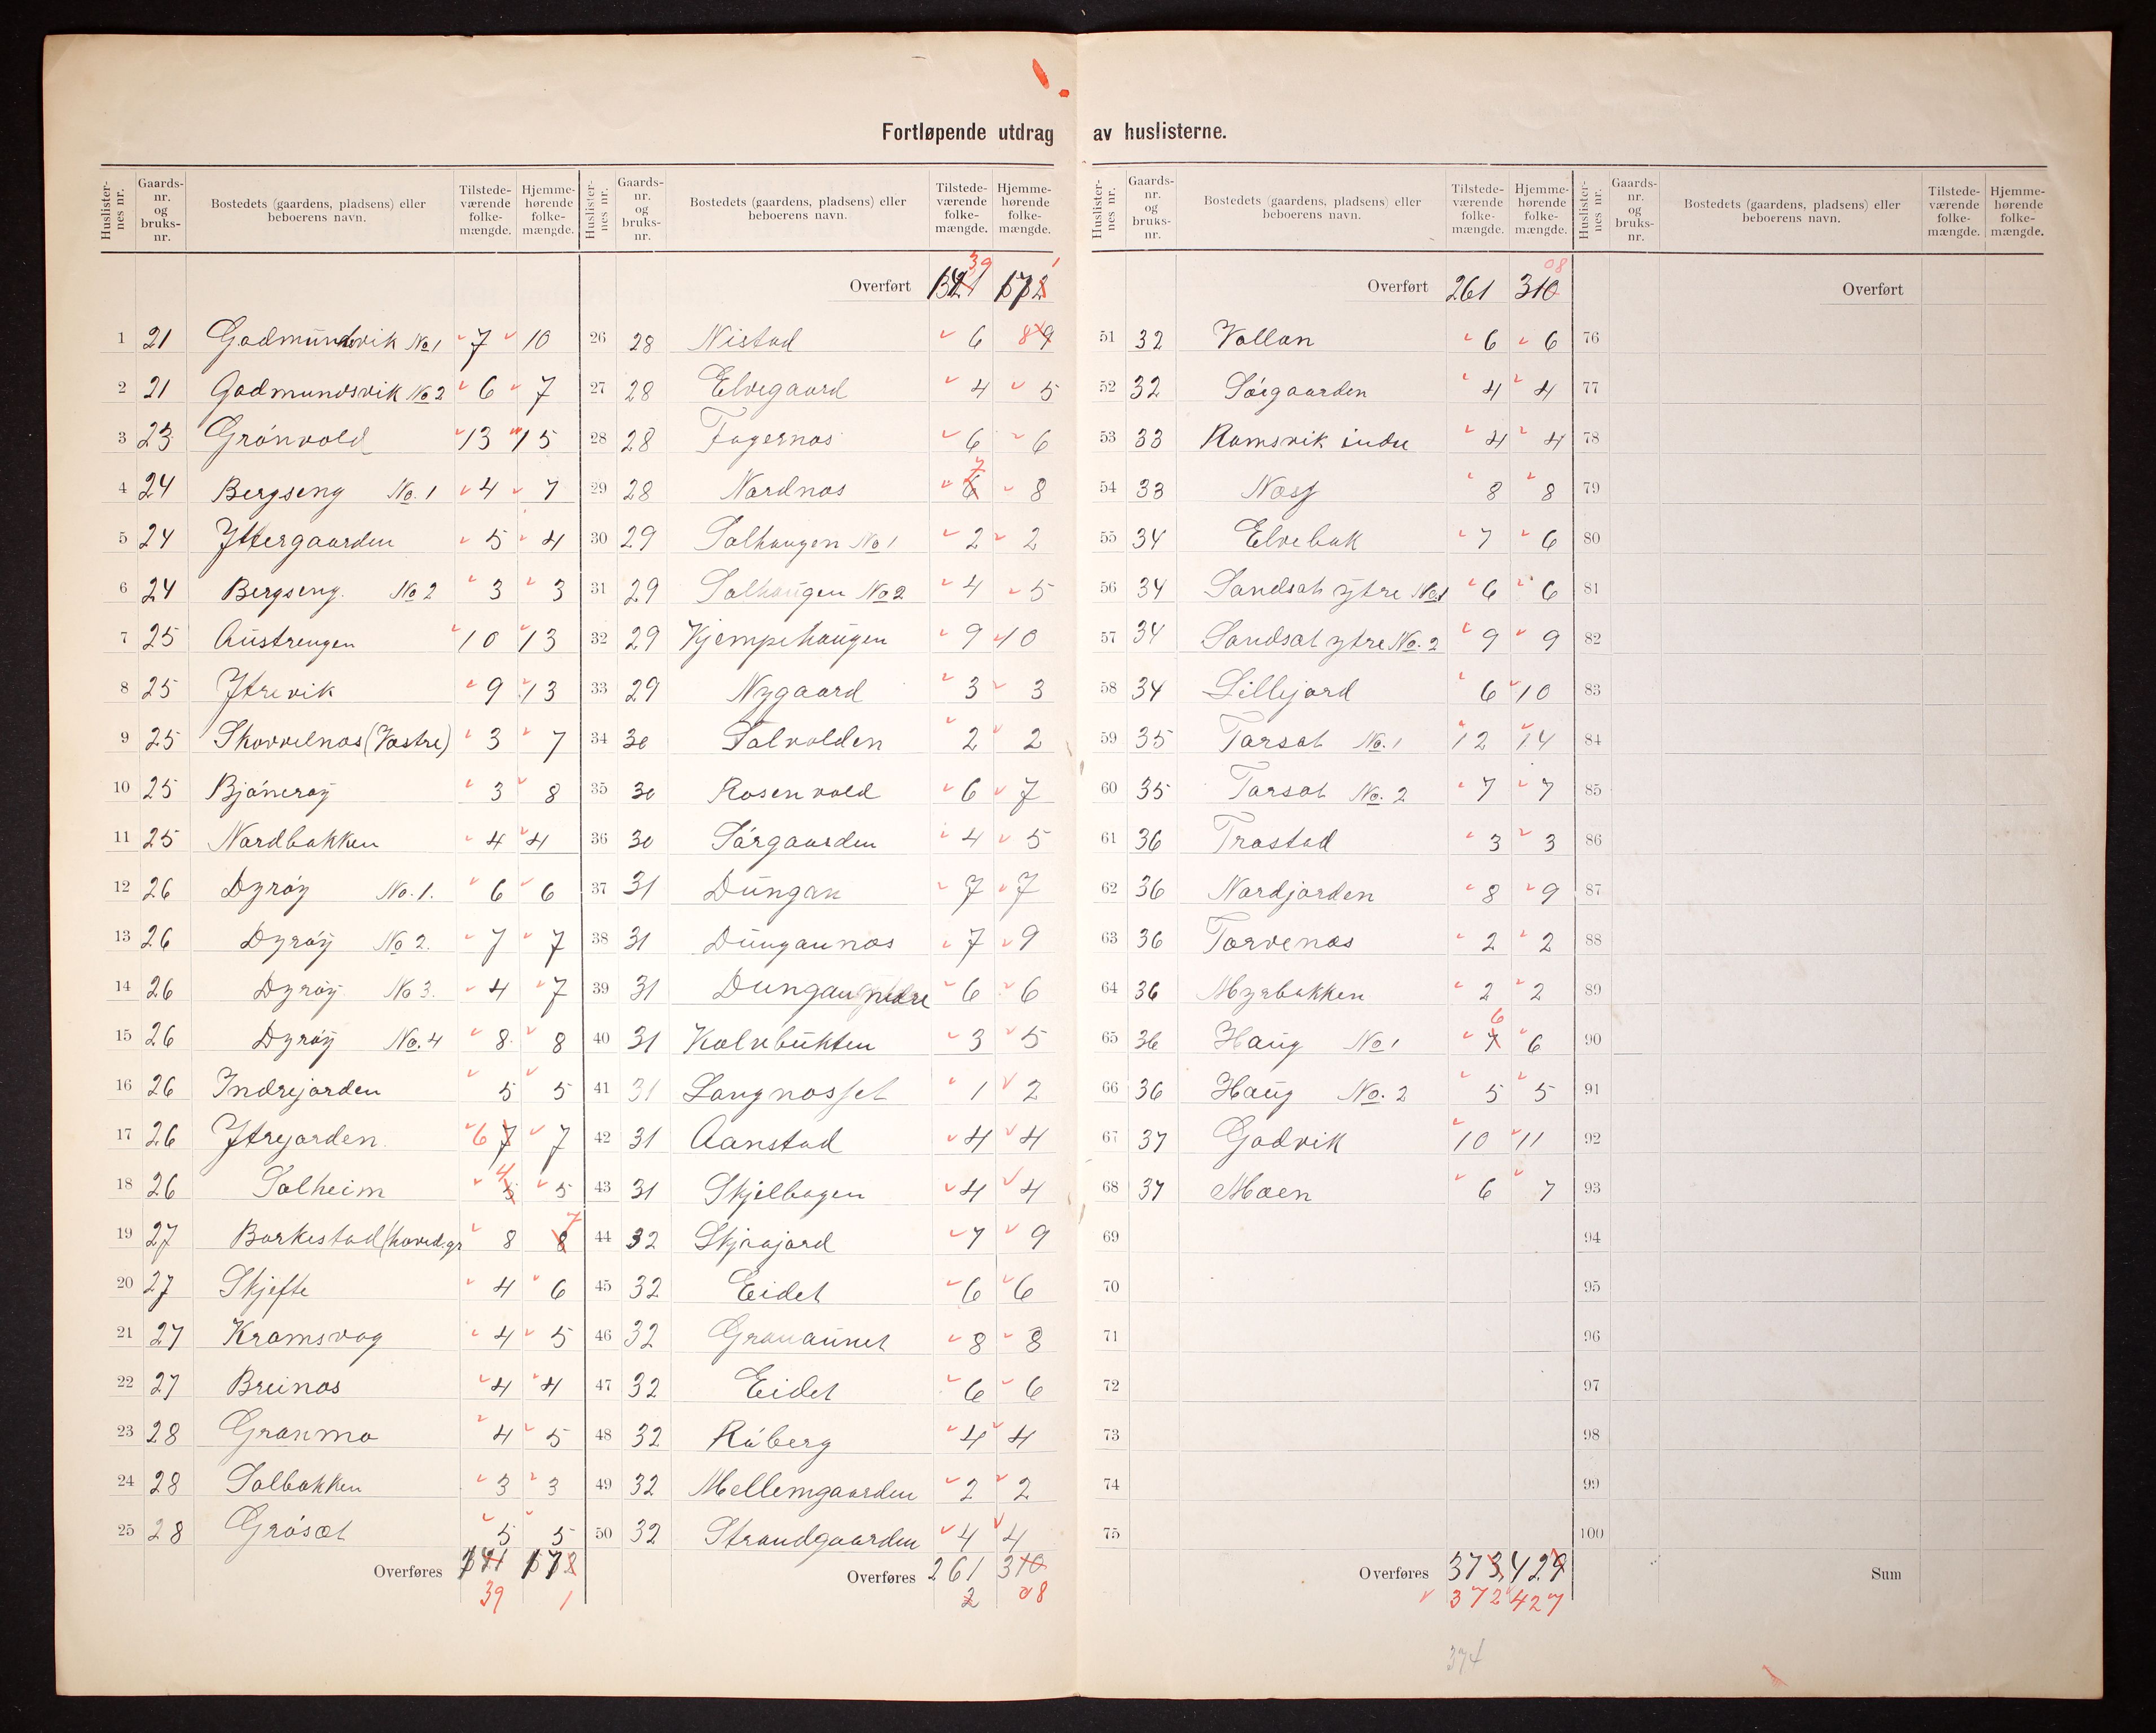 Fortløpende utdrag av huslisterne.
Huslister-nes nr. | Gaards-nr. og bruks-nr. | Bostedets (gaardens, pladsens) eller beboerens navn. | Tilstede-værende folke-mængde. | Hjemme-hørende folke-mængde.
1 21 Godmundsvik No 1 7 10
2 21 Godmundsvik No 2 6 7
3 23 Grönvold 13 15
4 24 Bergseng No. 1 4 7
5 24 Yttergaarden 5 4
6 24 Bergseng. No 2 3 3
7 25 Austrengen 10 13
8 25 Ytrevik 9 13
9 25 Skovvelnæs (Vestre) 3 7
10 25 Bjöneröy 3 8
11 25 Nordbakken 4 4
12 26 Dyröy No. 1. 6 6
13 26 Dyröy No 2. 7 7
14 26 Dyröy No 3. 4 7
15 26 Dyröy No. 4 8 8
16 26 Indrejorden 5 5
17 26 Ytrejorden. 6 7 7
18 26 Solheim 4 5 5
19 27 Borkestad (hoved.gr 8 8 7
20 27 Skjefte 4 6
21 27 Kramsvog 4 5
22 27 Breinæs 4 4
23 28 Granmo 4 5
24 28 Solbakken 3 3
25 28 Grösæt 5 5
Overføres 141 172
39 1
Huslister-nes nr. | Gaards-nr. og bruks-nr. | Bostedets (gaardens, pladsens) eller beboerens navn. | Tilstede-værende folke-mængde. | Hjemme-hørende folke-mængde.
39 1
Overført 141 172
26 28 Nistad 6 8 9
27 28 Elvegaard 4 5
28 28 Fagernes 6 6
29 28 Nordnæs 7 6 8
30 29 Solhaugen No 1 2 2
31 29 Solhaugen No 2 4 5
32 29 Kjempehaugen 9 10
33 29 Nygaard 3 3
34 30 Solvolden 2 2
35 30 Rosenvold 6 7
36 30 Sörgaarden 4 5
37 31 Dungan 7 7
38 31 Dungannæs 7 9
39 31 Dungan nedre 6 6
40 31 Kalvebukten 3 5
41 31 Langnæsset 1 2
42 31 Aanstad 4 4
43 31 Skjelbogen 4 4
44 32 Skjæajord 7 9
45 32 Eidet 6 6
46 32 Granaunet 8 8
47 32 Eidet 6 6
48 32 Råberg 4 4
49 32 Mellemgaarden 2 2
50 32 Strandgaarden 4 4
Overføres 261 310
2 08
Huslister-nes nr. | Gaards-nr. og bruks-nr. | Bostedets (gaardens, pladsens) eller beboerens navn. | Tilstede-værende folke-mængde. | Hjemme-hørende folke-mængde.
08
Overført 261 310
51 32 Vollan 6 6
52 32 Söigaarden 4 4
53 33 Ramsvik indre 4 4
54 33 Næss 8 8
55 34 Elvebak 7 6
56 34 Sandsæt ytre No. 1 6 6
57 34 Sandsæt ytre No. 2 9 9
58 34 Lillejord 6 10
59 35 Torsæt No. 1 12 14
60 35 Torsæt No. 2 7 7
61 36 Trastad 3 3
62 36 Nordjorden 8 9
63 36 Torvenæs 2 2
64 36 Myrbakken 2 2
65 36 Haug No 1 6 7 6
66 36 Haug No. 2 5 5
67 37 Godvik 10 11
68 37 Moen 6 7
69
70
71
72
73
74
75
Overføres 373 429
372 427
374
Huslister-nes nr. | Gaards-nr. og bruks-nr. | Bostedets (gaardens, pladsens) eller beboerens navn. | Tilstede-værende folke-mængde. | Hjemme-hørende folke-mængde.
Overført
76
77
78
79
80
81
82
83
84
85
86
87
88
89
90
91
92
93
94
95
96
97
98
99
100
Sum